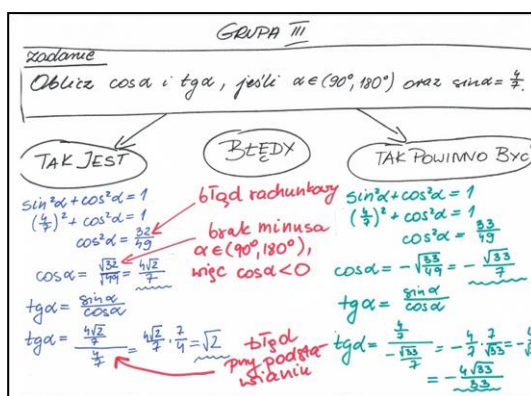 GRUPA III
Zadanie
Oblicz cosα i tgα, jeśli α∈(90°, 180°) oraz sinα = 4/7.
TAK JEST
sin²α + cos²α = 1
(4/7)² + cos²α = 1
cos²α = 32/49
cosα = √32/√49 = 4√2/7
tgα = sinα/cosα
tgα = (4√2/7)/(4/7) = 4√2/7 · 7/4 = √2
BŁĘDY
błąd rachunkowy
brak minusa
α∈(90°, 180°),
więc cosα<0
błąd
przy podsta-
wianiu
TAK POWINNO BYĆ
sin²α + cos²α = 1
(4/7)² + cos²α = 1
cos²α = 33/49
cosα = -√33/49 = -√33/7
tgα = sinα/cosα
tgα = (4/7)/(-√33/7) = -4/7 · 7/√33 = -
= -4√33/33